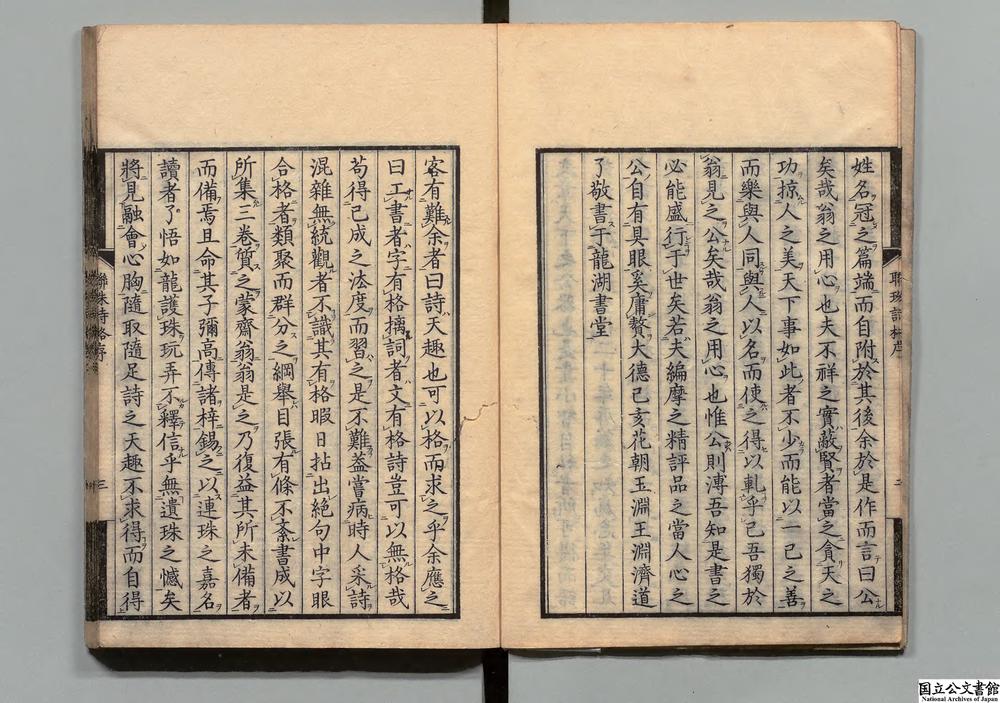 姓名冠之篇端而自附於其後余於是作而言曰公
矣哉翁之用心也夫不祥之實蔽賢者當之貪天之
功掠人之美天下事如此者不少而能以一己之善
而樂與人同與人以名而使之得以軋乎己吾獨於
翁見之公矣哉翁之用心也惟公則溥吾知是書之
必能盛行于世矣若夫編摩之精評品之當人心之
公自有具眼奚庸贅大德己亥花朝玉淵王淵濟道
了敬書于龍湖書堂
聯珠詩格序
二
客有難余者曰詩天趣也可以格而求之乎余應之
曰工書者字有格摛詞者文有格詩豈可以無格哉
苟得已成之法度而習之是不難蓋嘗病時人采詩
混雜無統觀者不識其有格暇日拈出絕句中字眼
合格者類聚而群分之綱舉目張有條不紊書成以
所集三卷質之蒙齋翁翁是之乃復益其所未備者
而備焉且命其子彌高傳諸梓錫之以連珠之嘉名
讀者了悟如龍護珠玩弄不釋信乎無遺珠之憾矣
將見融會心胸隨取隨足詩之天趣不求得而自得
聯珠詩格序
三
国立公文書館
National Archives of Japan